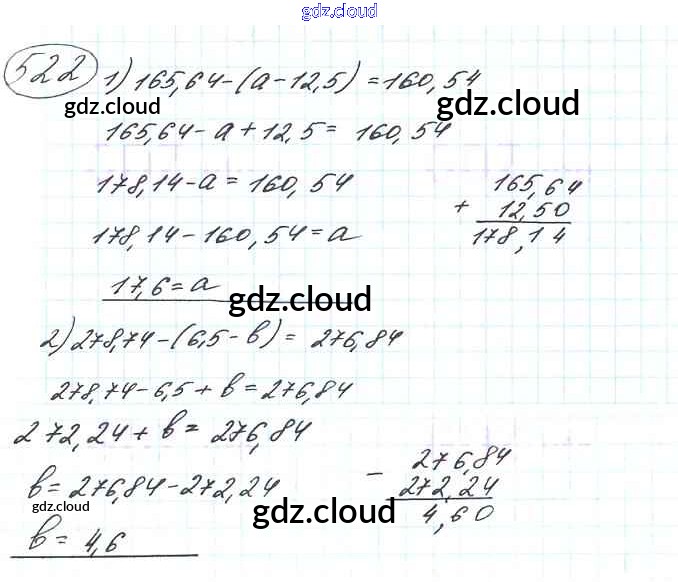 gdz.cloud
522
1) 165,64-(a-12,5)=160,54
gdz.cloud
gdz.cloud
165,64-a+12,5= 160,54
178,14-a=160,54
165,64
+ 12,50
178,14
178,14-160,54=a
17,6=a
gdz.cloud
2) 278,74-(6,5-b)= 276,84
278,74-6,5+b=276,84
272,24+b= 276,84
b=276,84-272,24
- 276,84
272,24
4,60
gdz.cloud
gdz.cloud
b= 4,6